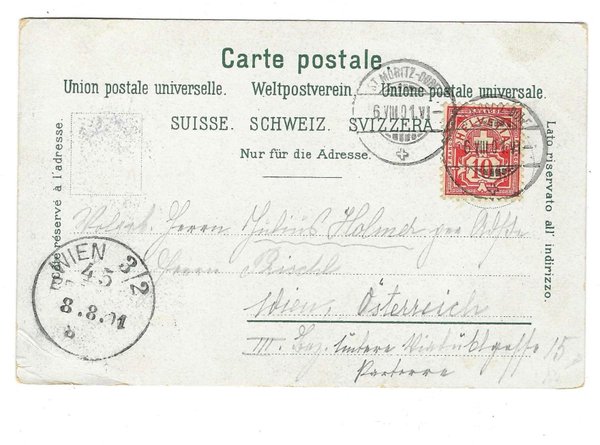 Carte postale
Union postale universelle. Weltpostverein. Unione postale universale.
SUISSE. SCHWEIZ. SVIZZERA.
Nur für die Adresse.
Côté réservé à l'adresse.
Lato riservato all' indirizzo.
ST. MORITZ-DORF
6.VIII.01.VI
HELVETIA
10
6.VIII.01.VI
WIEN 3/2
45
8.8.01
Herrn Julius Holmer per Adr
Herrn
Wien, Österreich
III. Bez. Untere Viaduktgasse 15
Parterre